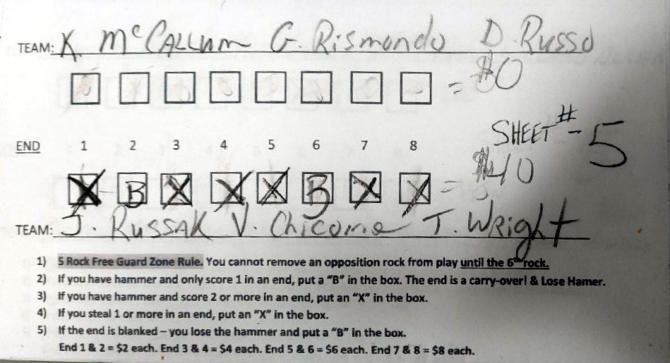 TEAM: K. McCALLUM G. Rismondo D. Russo
= $0
SHEET # - 5
END 1 2 3 4 5 6 7 8
X B X X X B X X = $40
TEAM: J. RUSSAK V. Chicome T. WRight
1) 5 Rock Free Guard Zone Rule. You cannot remove an opposition rock from play until the 6th rock.
2) If you have hammer and only score 1 in an end, put a "B" in the box. The end is a carry-over! & Lose Hamer.
3) If you have hammer and score 2 or more in an end, put an "X" in the box.
4) If you steal 1 or more in an end, put an "X" in the box.
5) If the end is blanked – you lose the hammer and put a "B" in the box.
End 1 & 2 = $2 each. End 3 & 4 = $4 each. End 5 & 6 = $6 each. End 7 & 8 = $8 each.